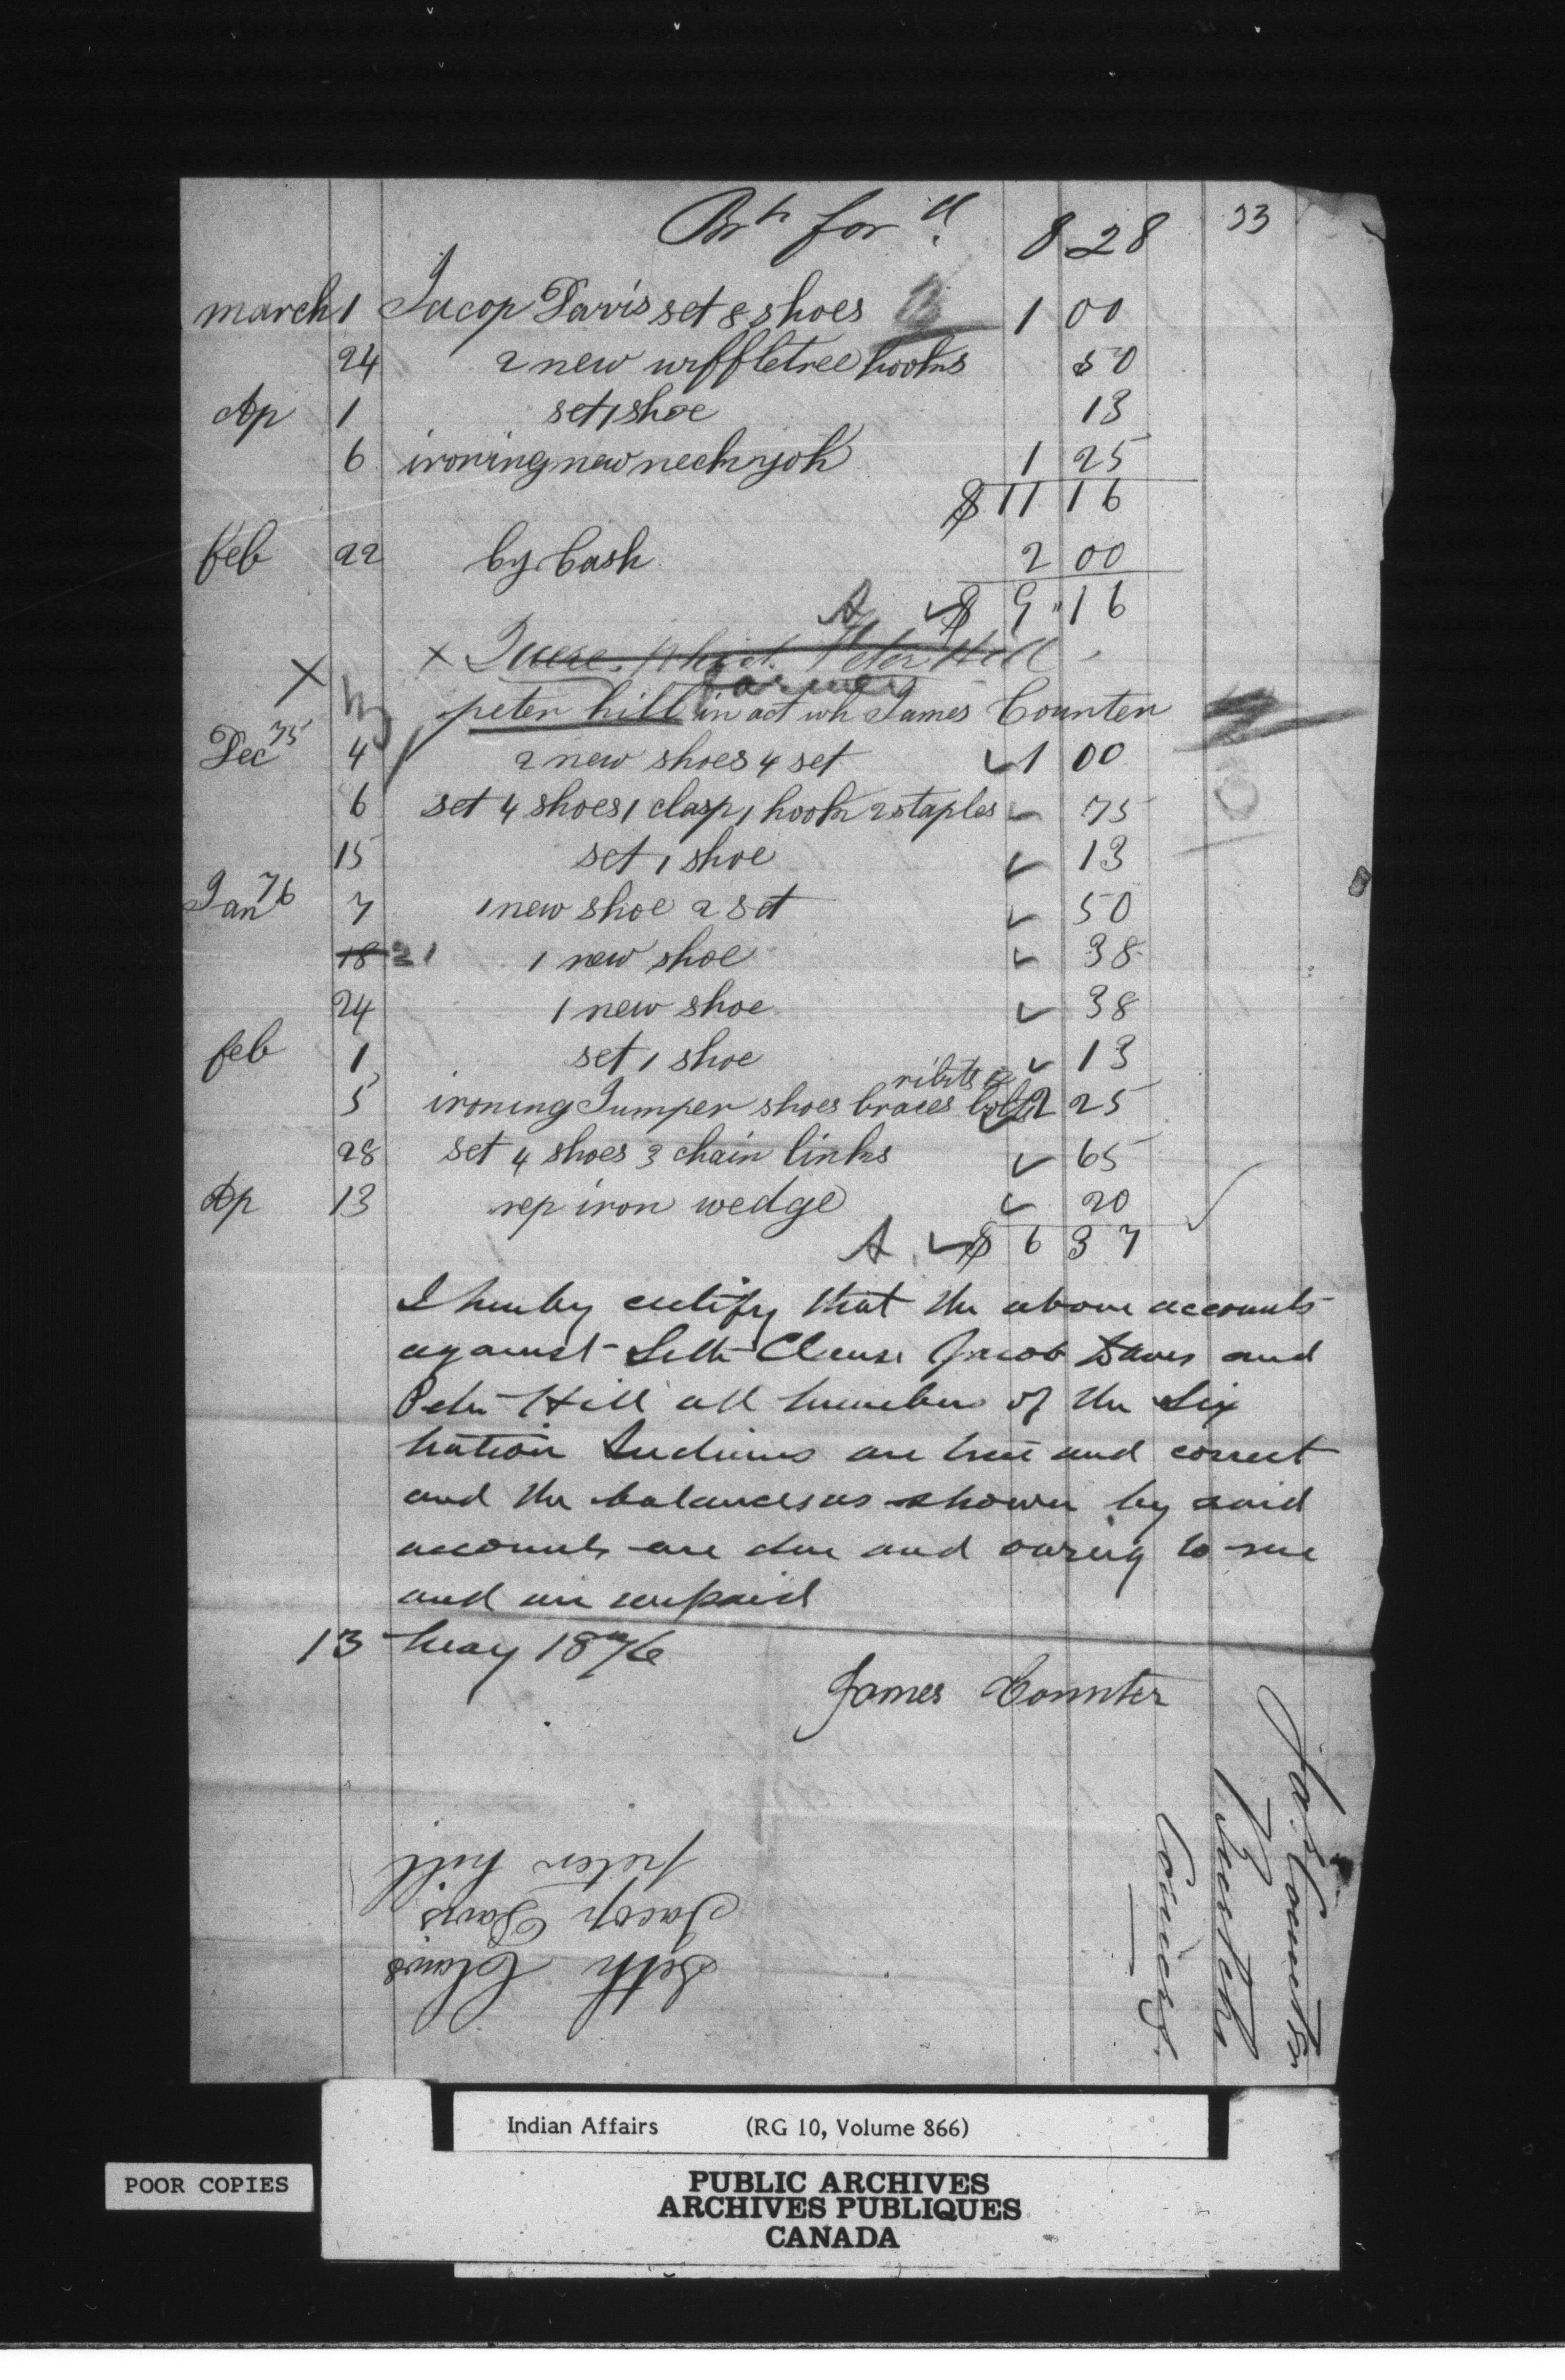 Brt for d. 8 28
33
march 1 Jacop Davis set 8 shoes 1 00
24 2 new wiffletree hooks 50
Ap 1 set 1 shoe 13
6 ironing new neck yok 1 25
$ 11 16
feb 22 by Cash 2 00
A $ 9 16
x Quere. Which Peter Hill
farmer
x peter hill in act wh James Counter
Dec 75 4 2 new shoes 4 set 1 00
6 set 4 shoes 1 clasp 1 hook 2 staples 75
15 set 1 shoe 13
Jan 76 7 1 new shoe 2 set 50
18 21 1 new shoe 38
24 1 new shoe 38
feb 1 set 1 shoe 13
ribits
5 ironing Jumper shoes braces bolts 2 25
28 set 4 shoes 3 chain links 65
Ap 13 rep iron wedge 20
A $ 6 37
I hereby certify that the above accounts
against Seth Clause Jacob Daves and
Peter Hill all members of the Six
Nation Indians are true and correct
and the balances as shown by said
accounts are due and owing to me
and are unpaid
13 May 1876
James Counter
Jas. Counter
peter hill
Jacop Davis
Seth Claws
Indian Affairs (RG 10, Volume 866)
POOR COPIES
PUBLIC ARCHIVES
ARCHIVES PUBLIQUES
CANADA